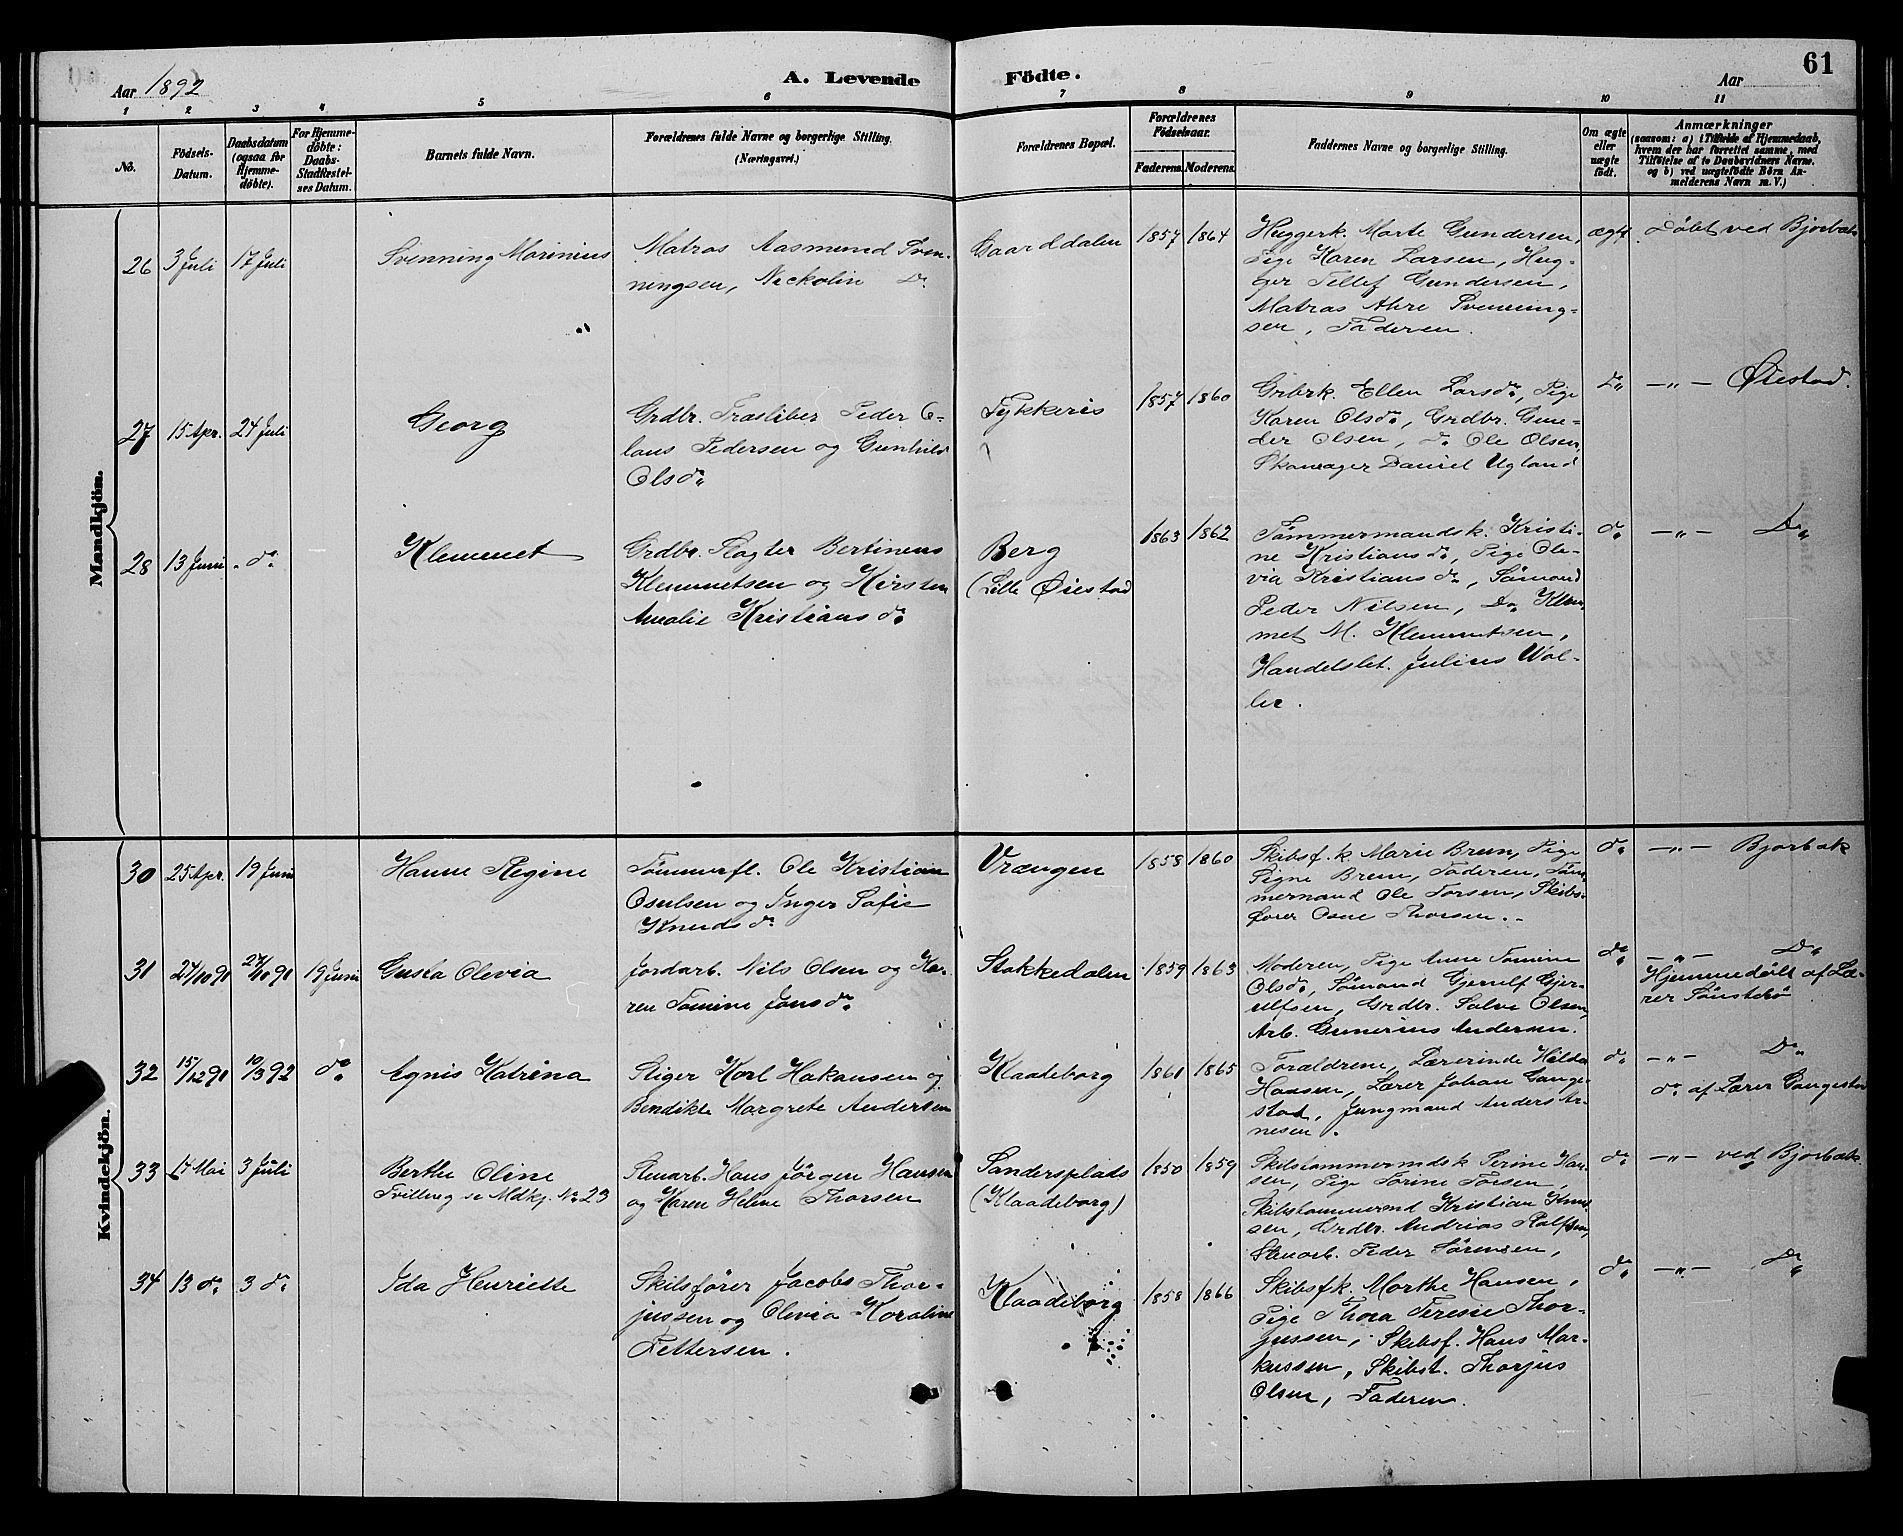 Aar 1892
A. Levende Födte.
Aar
61
1 2 3 4 5 6 7 8 9 10 11
No.
Födsels-
Datum.
Daabsdatum
(ogsaa for
Hjemme-
döbte).
For Hjemme-
døbte:
Daabs-
Stadfæstel-
ses Datum.
Barnets fulde Navn.
Forældrenes fulde Navne og borgerlige Stilling.
(Næringsvei.)
Forældrenes Bopæl.
Forældrenes
Födselsaar.
Faderens. Moderens.
Faddernes Navne og borgerlige Stilling.
Om ægte
eller
uægte
födt.
Anmærkninger
(saasom: a) i Tilfælde af Hjemmedaab,
hvem der har forrettet samme, med
Tilföielse af to Daabsvidners Navne.
og b) ved uægtefödte Börn An-
melderens Navn m. V.)
Mandkjön.
26 3 Juli 17 Juli
Svenning Marinius
Matros Aasmund Sven-
ningsen, Nickolin Do
Gaarddalen
1857 1864
Huggerk. Marte Gundersen,
Pige Karen Larsen, Hug-
ger Tellef Gundersen,
Matros Akre Svenning-
sen, Faderen.
ægte
Døbt ved Bjorbæk
27 15 Apr. 24 Juli
Georg
Grdbr. Træsliber Peder C-
laus Pedersen og Gunhild
Olsdr
Tykkeris
1857 1860
Grbrk. Ellen Larsdr, Pige
Karen Olsdr, Grdbr. Gun-
der Olsen, Do Ole Olsen,
Skomager Daniel Ugland
Do
—"— Øiestad.
28 13 Juni do
Klemmet
Grdbr. Slagter Bertinius
Klemmetsen og Kirsten
Amalie Kristiansdr
Berg
(Lille Øiestad
1863 1862
Tømmermandsk. Kristi-
ne Kristiansdr, Pige Ole-
via Kristiansdr, Sømand
Peder Nilsen, Do Klem-
met M. Klemmetsen,
Handelsbet. Julius Wol-
ler.
do
—"— Do
Kvindekjön.
30 25 Apr. 19 Juni
Hanne Regine
Tømmerfl. Ole Kristian
Osulsen og Inger Sofie
Knudsdr
Vrængen
1858 1860
Skibsf.k. Marie Brun, Pige
Signe Brun, Faderen, Tøm-
mermand Ole Torsen, Skibs-
fører Osne Thorsen.
do
—"— Bjorbæk
31 24/10 91 27/10 91 19 Juni
Gusta Olevia
Jordarb. Nils Olsen og Ka-
ren Tomine Jansdr
Stakkedalen
1859 1863
Moderen, Pige Anne Tomine
Olsdr, Sømand Gjerulf Gjer-
ulfsen, Grdbr. Salve Olsen,
Arb. Gunerius Andersen.
do
—"— Do
Hjemmedøbt af Læ-
rer Sønstebø
32 15/12 91 10/3 92 do
Agnis Katrina
Rigger Karl Hakansen og
Bendikte Margrete Andersen
Klaadeborg
1861 1865
Forældrene, Lærerinde Hilda
Hansen, Lærer Johan Gange-
stad, Jungmand Anders Ar-
nesen.
do
—"— Do
do af Lærer Gangestad
33 17 Mai 3 Juli
Berthe Oline
Tvilling se Mdkj. No 23
Stenarb. Hans Jørgen Hansen
og Karen Helene Thorsen
Sandersplads
(Klaadeborg)
1850 1859
Skibstømmermdsk. Serine Han-
sen, Pige Torine Torsen,
Skibstømmermd Kristian Knud-
sen, Grdbr. Andrias Rolfsen,
Stenarb. Peder Sørensen,
do
—"— ved Bjorbæk
34 13 do 3 do
Ida Henriette
Skibsfører Jacobs Thor-
jussen og Olevia Karoline
Tellersen.
Klaadeborg
1858 1866
Skibsf.k. Marthe Hansen,
Pige Thora Teresie Thor-
jussen, Skibsf. Hans Mar-
kussen, Skibst. Thorjus
Olsen, Faderen.
do
—"— Do